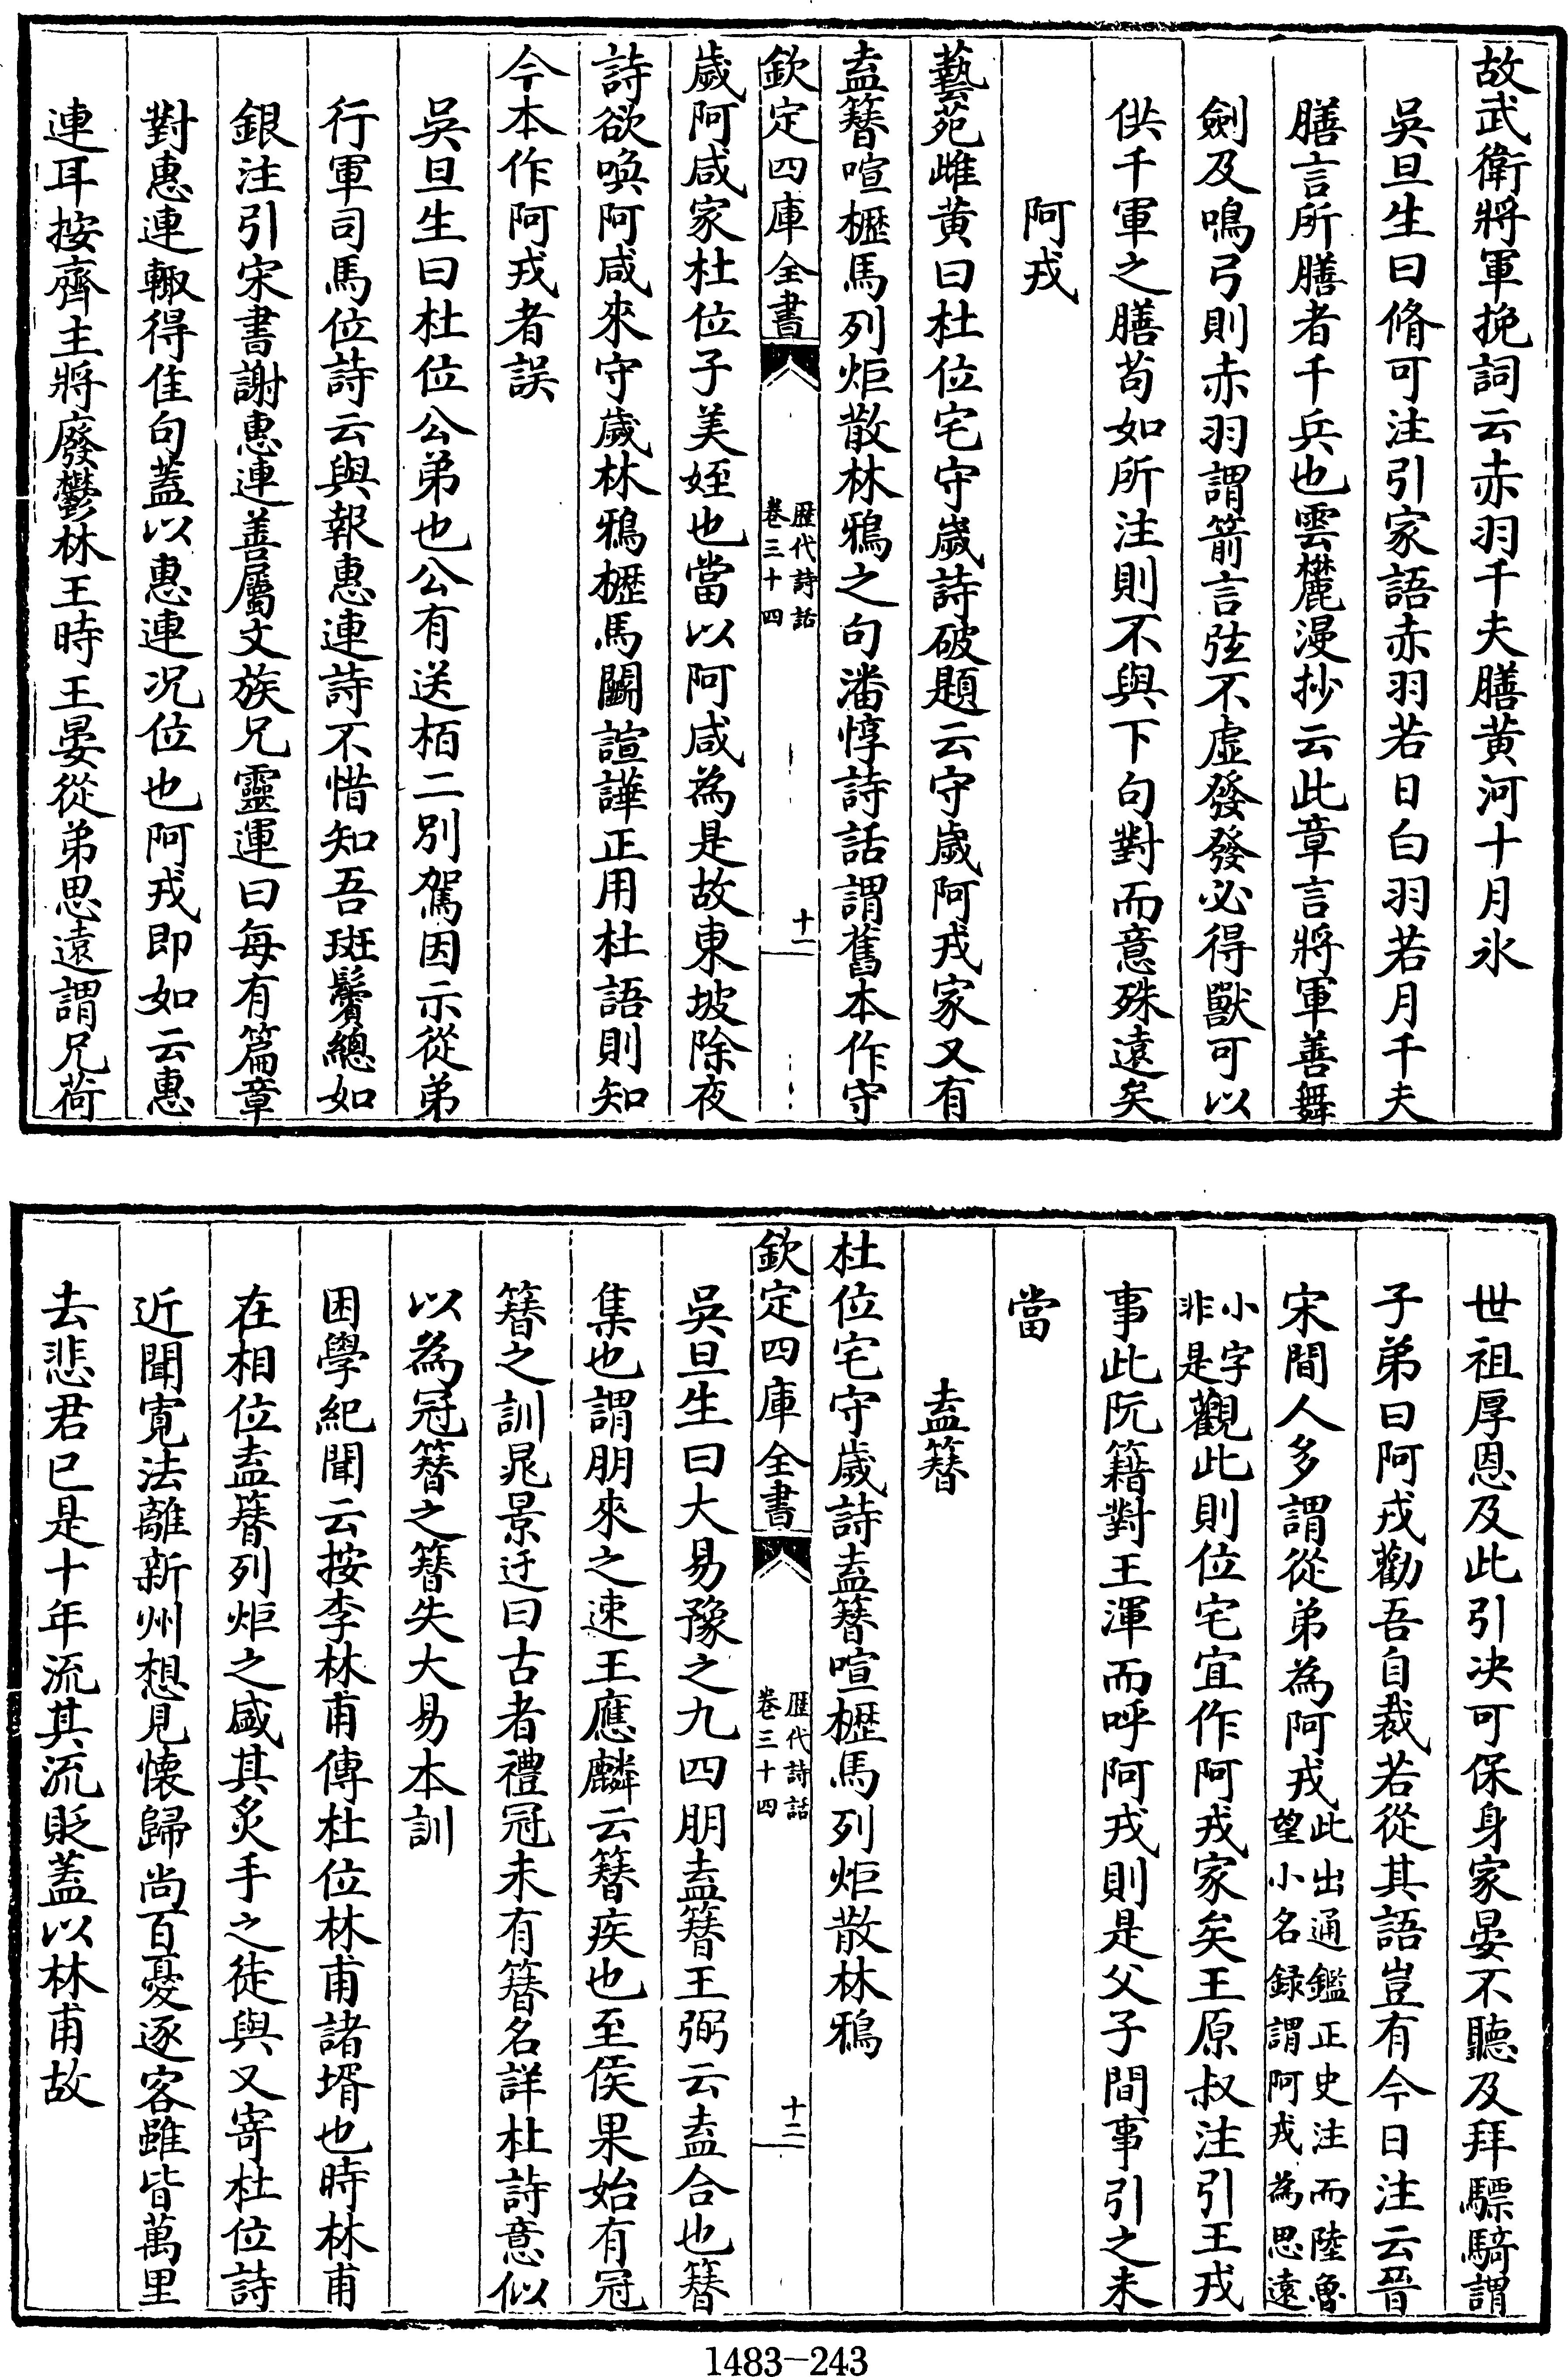 故武衛將軍挽詞云赤羽千夫膳黄河十月氷
吳旦生曰脩可注引家語赤羽若日白羽若月千夫
膳言所膳者千兵也雲麓漫抄云此章言將軍善舞
劍及鳴弓則赤羽謂箭言弦不虚發發必得獸可以
供千軍之膳苟如所注則不與下句對而意殊遠矣
阿戎
藝苑雌黄曰杜位宅守嵗詩破題云守嵗阿戎家又有
盍簮喧櫪馬列炬散林鴉之句潘惇詩話謂舊本作守
欽定四庫全書
歴代詩話
卷三十四
十一
嵗阿咸家杜位子美姪也當以阿咸為是故東坡除夜
詩欲喚阿咸來守嵗林鴉櫪馬鬭諠譁正用杜語則知
今本作阿戎者誤
吳旦生曰杜位公弟也公有送栢二別駕因示從弟
行軍司馬位詩云與報惠連詩不惜知吾斑鬢總如
銀注引宋書謝惠連善屬文族兄靈運曰每有篇章
對惠連輙得佳句蓋以惠連况位也阿戎即如云惠
連耳按齊主將廢鬱林王時王晏從弟思遠謂兄荷
世祖厚恩及此引决可保身家晏不聽及拜驃騎謂
子弟曰阿戎勸吾自裁若從其語豈有今日注云晉
宋間人多謂從弟為阿戎此出通鑑正史注而陸魯
望小名録謂阿戎為思遠
小字
非是觀此則位宅宜作阿戎家矣王原叔注引王戎
事此阮籍對王渾而呼阿戎則是父子間事引之未
當
盍簮
杜位宅守嵗詩盍簮喧櫪馬列炬散林鴉
欽定四庫全書
歴代詩話
卷三十四
十二
吳旦生曰大易豫之九四朋盍簮王弼云盍合也簮
集也謂朋來之速王應麟云簮疾也至侯果始有冠
簮之訓晁景迂曰古者禮冠未有簮名詳杜詩意似
以為冠簮之簮失大易本訓
困學紀聞云按李林甫傳杜位林甫諸壻也時林甫
在相位盍簮列炬之盛其炙手之徒與又寄杜位詩
近聞寛法離新州想見懐歸尚百憂逐客雖皆萬里
去悲君已是十年流其流貶蓋以林甫故
1483-243